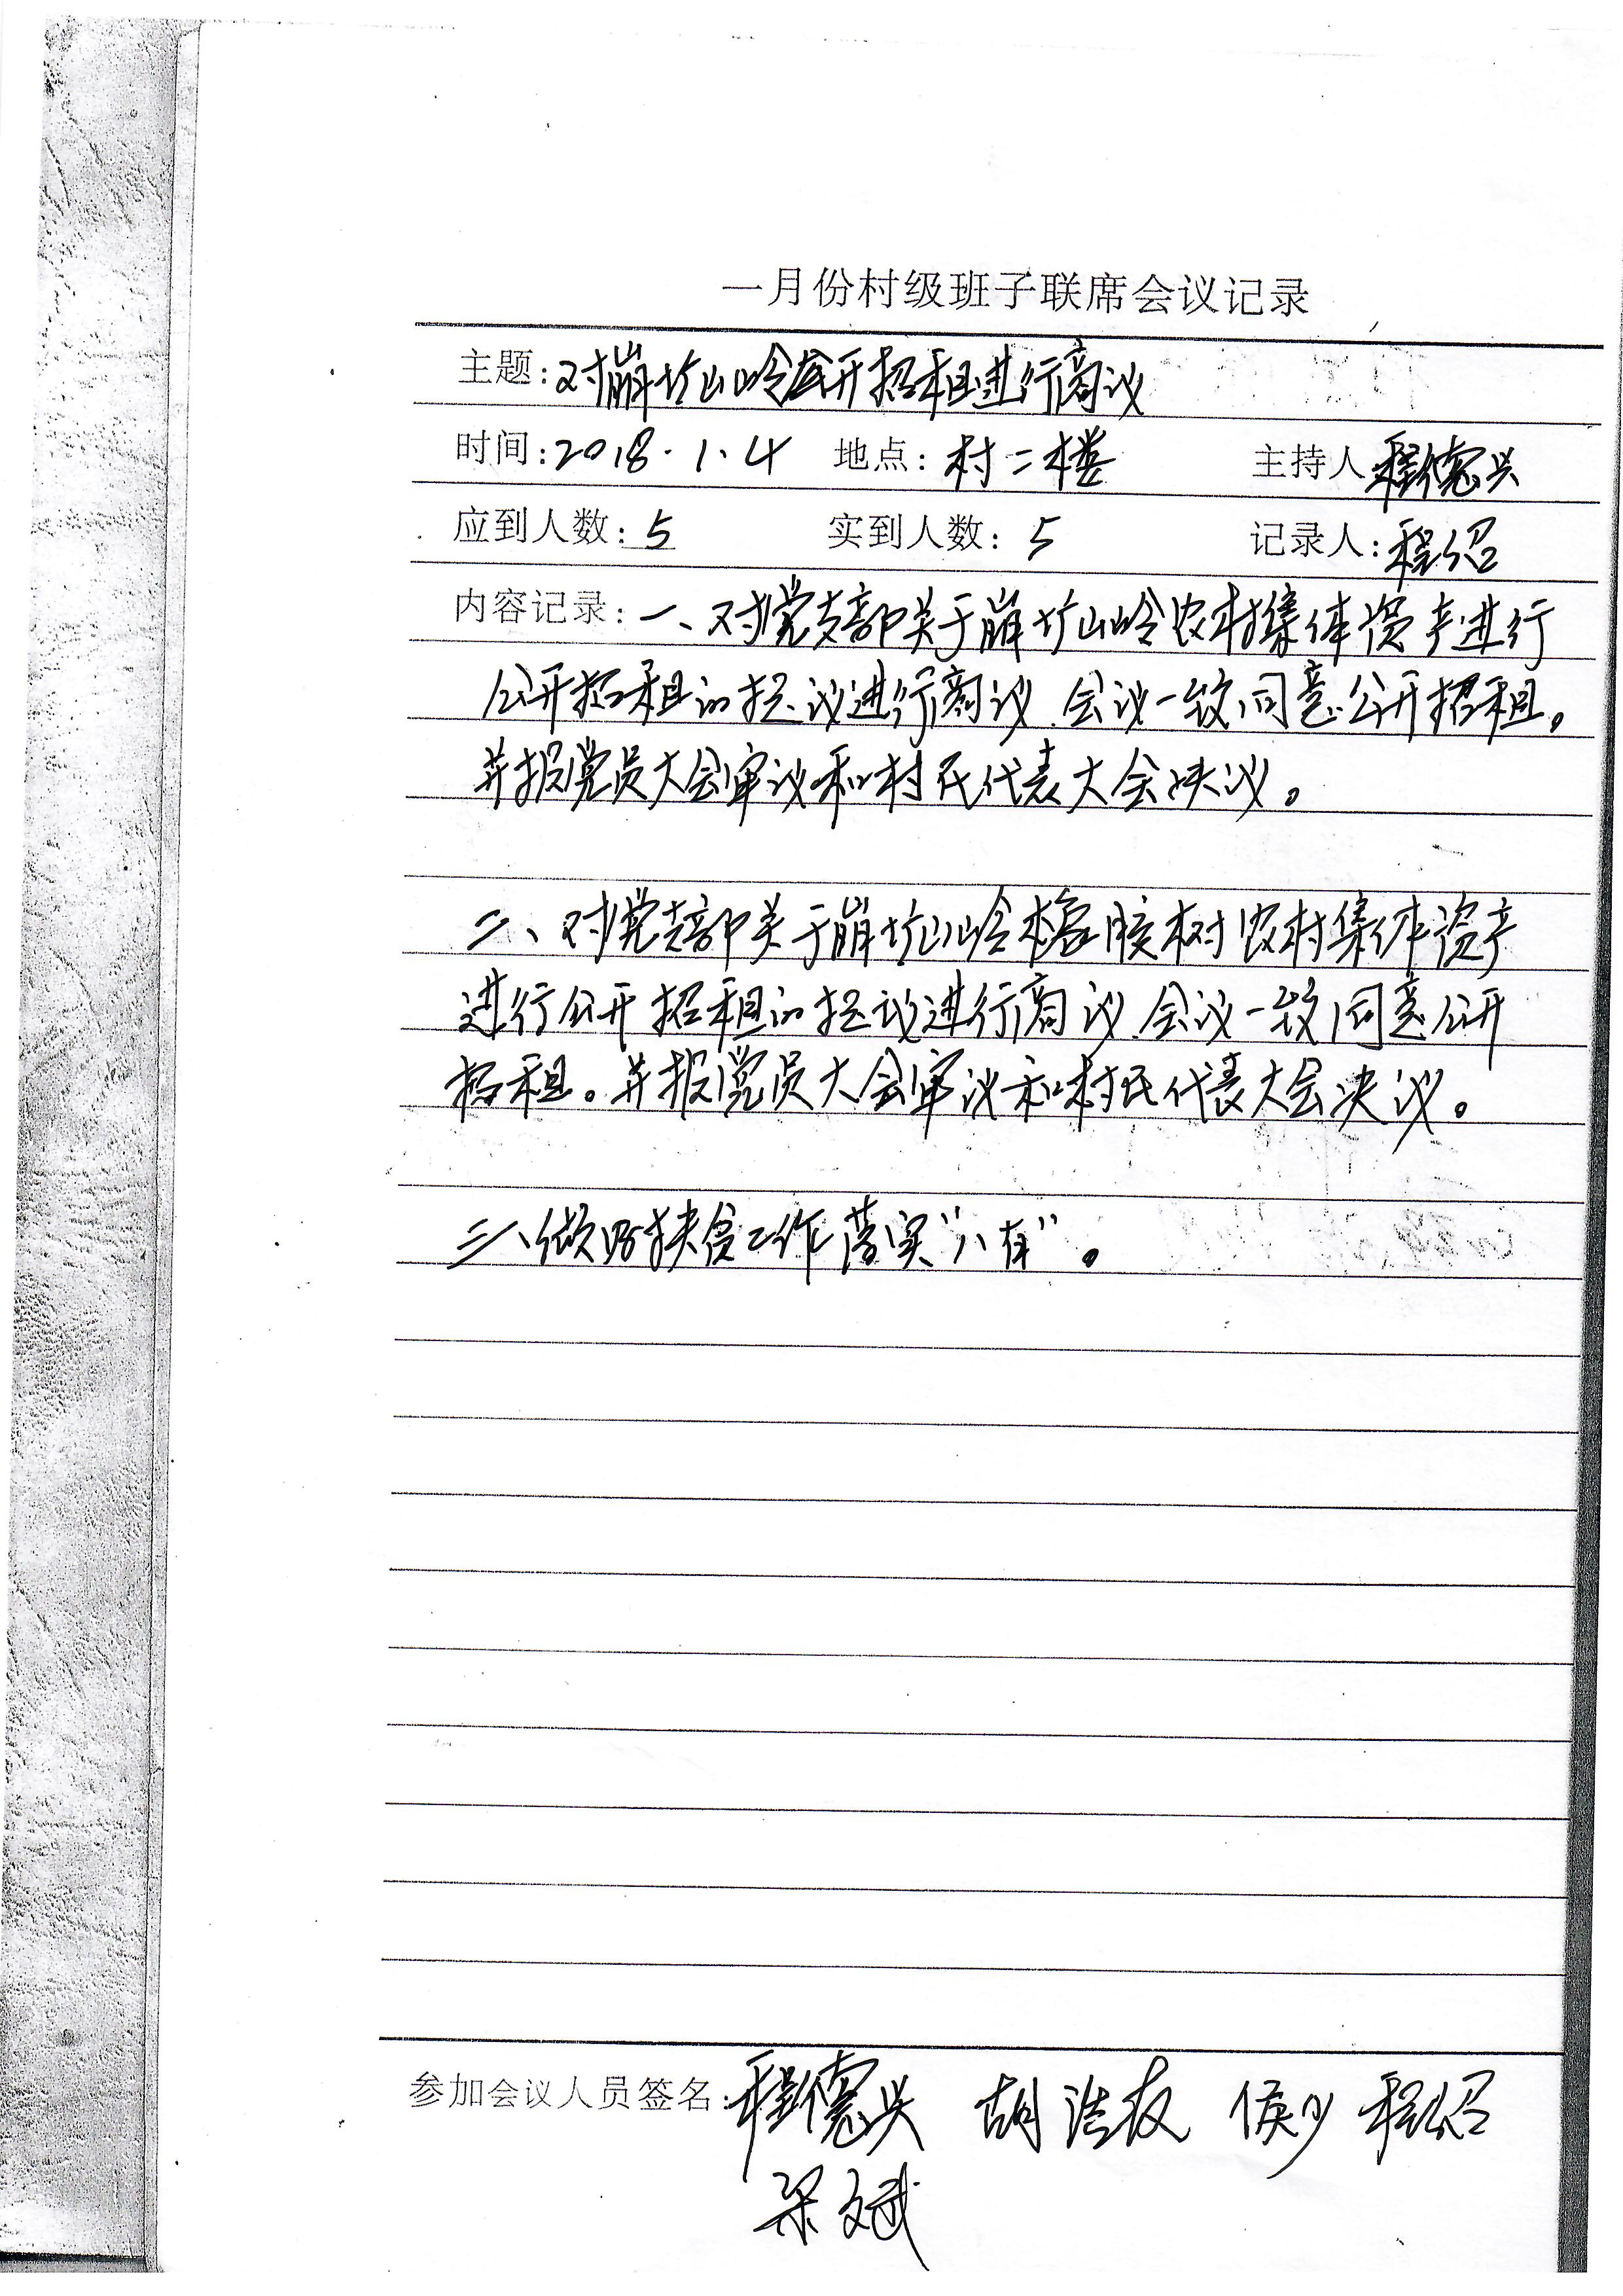 一月份村级班子联席会议记录
主题:对崩坎山岭公开招租进行商议
时间:2018.1.4 地点:村二楼 主持人程德兴
应到人数:5 实到人数:5 记录人:程绍
内容记录:一、对党支部关于崩坎山岭农村集体资产进行
公开招租的提议进行商议、会议一致同意公开招租,
并报党员大会审议和村民代表大会决议。
二、对党支部关于崩坎山岭橡胶树农村集体资产
进行公开招租的提议进行商议、会议一致同意公开
招租。并报党员大会审议和村民代表大会决议。
三、做好扶贫工作落实“八有”。
参加会议人员签名:程德兴 胡浩友 侯少 程绍
梁文斌